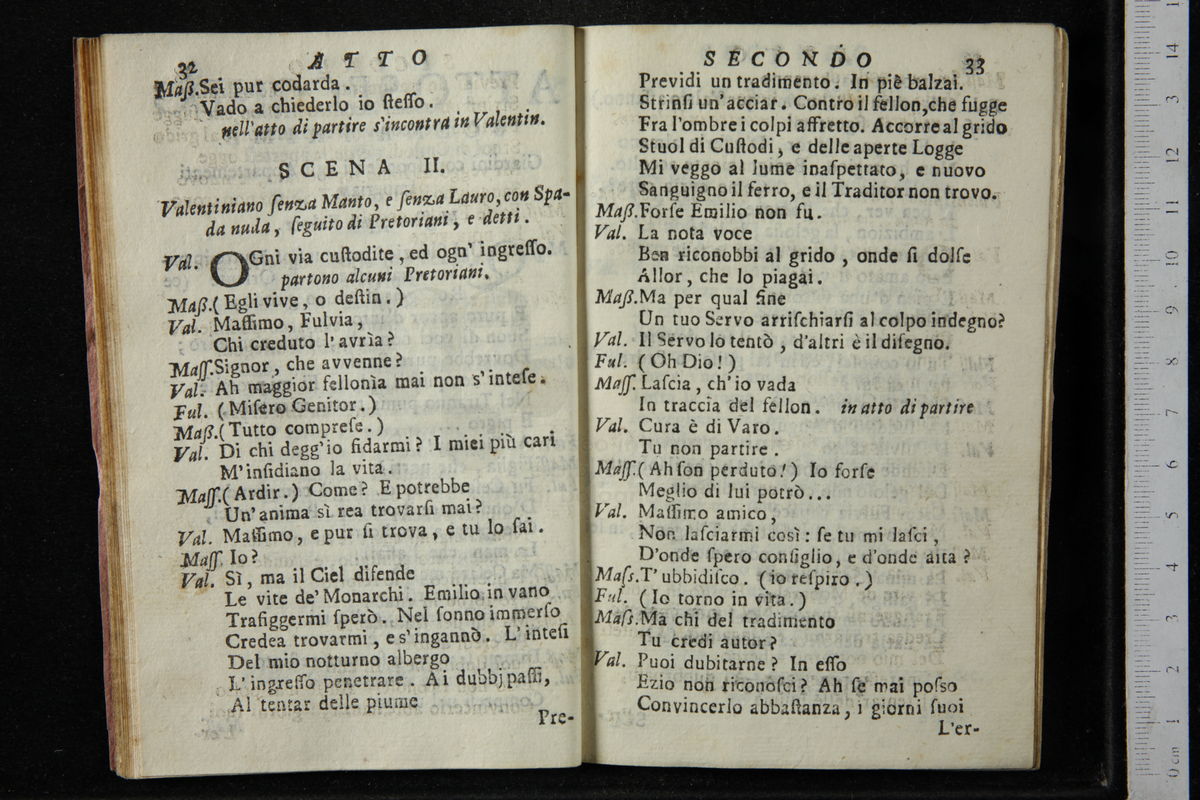 32 ATTO
Maß. Sei pur codarda.
Vado a chiederlo io ſteſſo.
nell'atto di partire s'incontra in Valentin.
SCENA II.
Valentiniano ſenza Manto, e ſenza Lauro, con Spa-
da nuda, ſeguito di Pretoriani, e detti.
Val. OGni via cuſtodite, ed ogn' ingreſſo.
partono alcuni Pretoriani.
Maß. (Egli vive, o deſtin.)
Val. Maſſimo, Fulvia,
Chi creduto l'avrìa?
Maſſ. Signor, che avvenne?
Val. Ah maggior fellonìa mai non s'inteſe.
Ful. (Miſero Genitor.)
Maß. (Tutto compreſe.)
Val. Di chi degg'io fidarmi? I miei più cari
M'inſidiano la vita.
Maſſ. (Ardir.) Come? E potrebbe
Un'anima sì rea trovarſi mai?
Val. Maſſimo, e pur ſi trova, e tu lo ſai.
Maſſ. Io?
Val. Sì, ma il Ciel difende
Le vite de' Monarchi. Emilio in vano
Trafiggermi ſperò. Nel ſonno immerſo
Credea trovarmi, e s'ingannò. L'inteſi
Del mio notturno albergo
L'ingreſſo penetrare. Ai dubbj paſſi,
Al tentar delle piume
Pre-
SECONDO 33
Previdi un tradimento. In piè balzai.
Strinſi un'acciar. Contro il fellon, che fugge
Fra l'ombre i colpi affretto. Accorre al grido
Stuol di Cuſtodi, e delle aperte Logge
Mi veggo al lume inaſpettato, e nuovo
Sanguigno il ferro, e il Traditor non trovo.
Maß. Forſe Emilio non fu.
Val. La nota voce
Ben riconobbi al grido, onde ſi dolſe
Allor, che lo piagai.
Maß. Ma per qual fine
Un tuo Servo arriſchiarſi al colpo indegno?
Val. Il Servo lo tentò, d'altri è il diſegno.
Ful. (Oh Dio!)
Maſſ. Laſcia, ch'io vada
In traccia del fellon. in atto di partire
Val. Cura è di Varo.
Tu non partire.
Maſſ. (Ah ſon perduto!) Io forſe
Meglio di lui potrò...
Val. Maſſimo amico,
Non laſciarmi così: ſe tu mi laſci,
D'onde ſpero conſiglio, e d'onde aita?
Maſs. T'ubbidiſco. (io reſpiro.)
Ful. (Io torno in vita.)
Maſs. Ma chi del tradimento
Tu credi autor?
Val. Puoi dubitarne? In eſſo
Ezio non riconoſci? Ah ſe mai poſso
Convincerlo abbaſtanza, i giorni ſuoi
L'er-
14
13
12
11
10
9
8
7
6
5
4
3
2
1
0 cm